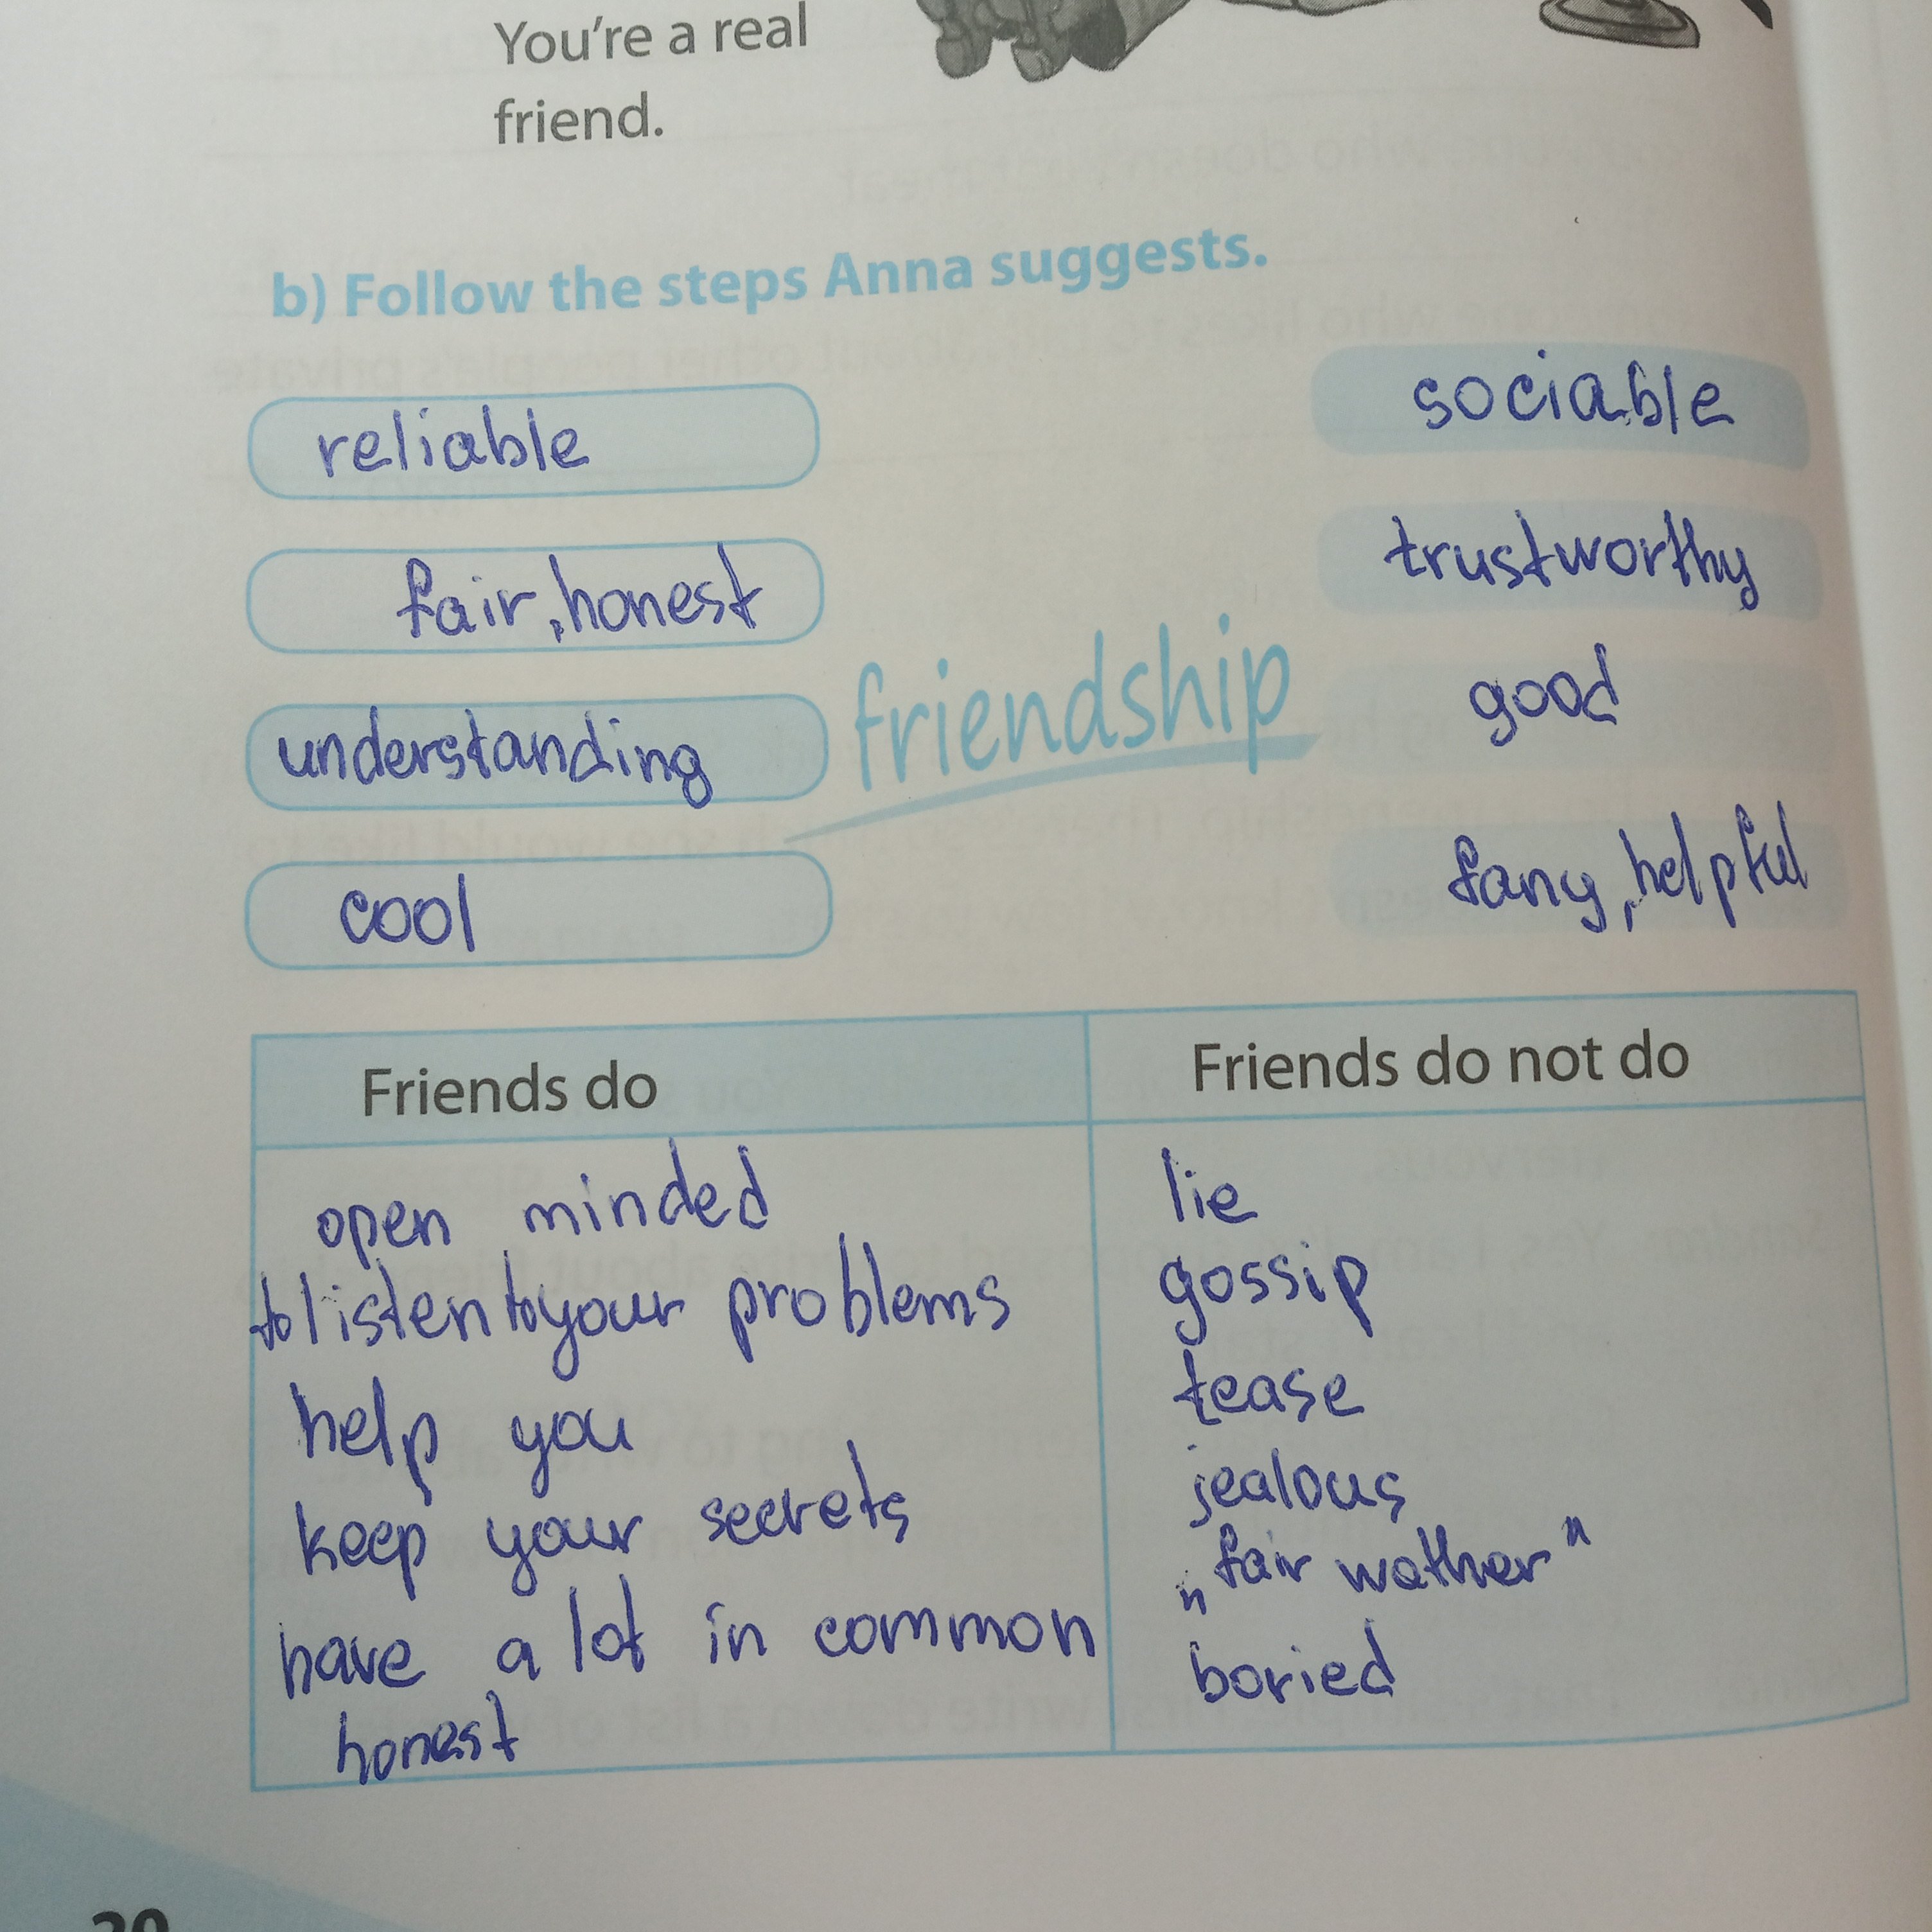 You're a real
friend.
b) Follow the steps Anna suggests.
reliable
fair, honest
understanding
cool
friendship
sociable
trustworthy
good
fany, helpful
Friends do
open minded
to listen to your problems
help you
keep your secrets
have a lot in common
honest
Friends do not do
lie
gossip
tease
jealous
„fair wather"
boried